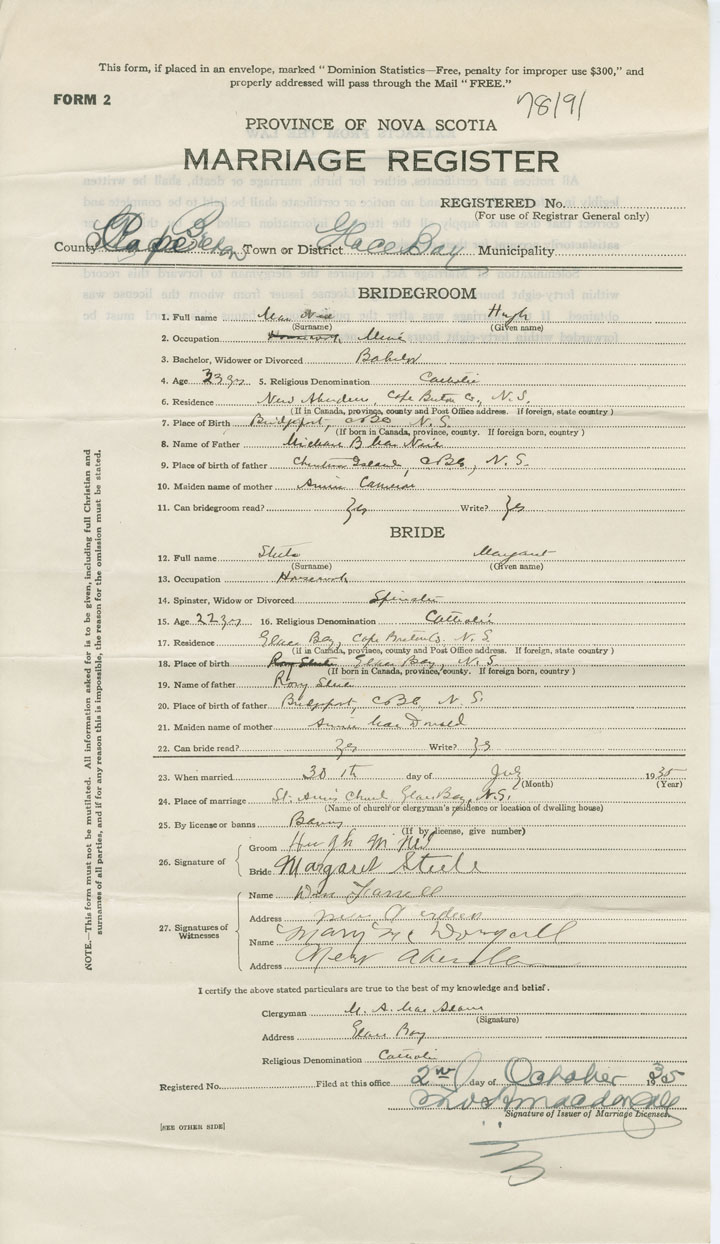 This form, if placed in an envelope, marked "Dominion Statistics—Free, penalty for improper use $300," and
properly addressed will pass through the Mail "FREE."
FORM 2
78191
PROVINCE OF NOVA SCOTIA
MARRIAGE REGISTER
REGISTERED No.
(For use of Registrar General only)
County Cape Breton Town or District Glace Bay Municipality
BRIDEGROOM
1. Full name Mac Neil Hugh
(Surname) (Given name)
2. Occupation Miner
3. Bachelor, Widower or Divorced Bachelor
4. Age 23 yrs 5. Religious Denomination Catholic
6. Residence New Aberdeen, Cape Breton Co, N. S.
(If in Canada, province, county and Post Office address. If foreign, state country)
7. Place of Birth Bridgeport, CBC N. S.
(If born in Canada, province, county. If foreign born, country)
8. Name of Father Michael B Mac Neil
9. Place of birth of father Christmas Island, CBC, N. S.
10. Maiden name of mother Annie Cameron
11. Can bridegroom read? Yes Write? Yes
BRIDE
12. Full name Steele Margaret
(Surname) (Given name)
13. Occupation Housework
14. Spinster, Widow or Divorced Spinster
15. Age 22 yrs 16. Religious Denomination Catholic
17. Residence Glace Bay, Cape Breton Co, N. S.
(If in Canada, province, county and Post Office address. If foreign, state country)
18. Place of birth Rory Steele Glace Bay, N. S
(If born in Canada, province, county. If foreign born, country)
19. Name of father Rory Steele
20. Place of birth of father Bridgeport, CBC, N. S.
21. Maiden name of mother Annie Mac Donald
22. Can bride read? Yes Write? Yes
23. When married 30 th day of July 1935
(Month) (Year)
24. Place of marriage St. Ann's Church Glace Bay, N.S.
(Name of church or clergyman's residence or location of dwelling house)
25. By license or banns Banns
(If by license, give number)
26. Signature of
Groom Hugh McNeil
Bride Margaret Steele
27. Signatures of Witnesses
Name Farrell
Address New Aberdeen
Name Mary McDougall
Address New Aberdeen
I certify the above stated particulars are true to the best of my knowledge and belief.
Clergyman M. A. Mac Adam
(Signature)
Address Glace Bay
Religious Denomination Catholic
Registered No. Filed at this office 2nd day of October 1935
Macdougall
Signature of Issuer of Marriage Licenses
[SEE OTHER SIDE]
NOTE.—This form must not be mutilated. All information asked for is to be given, including full Christian and
surnames of all parties, and if for any reason this is impossible, the reason for the omission must be stated.